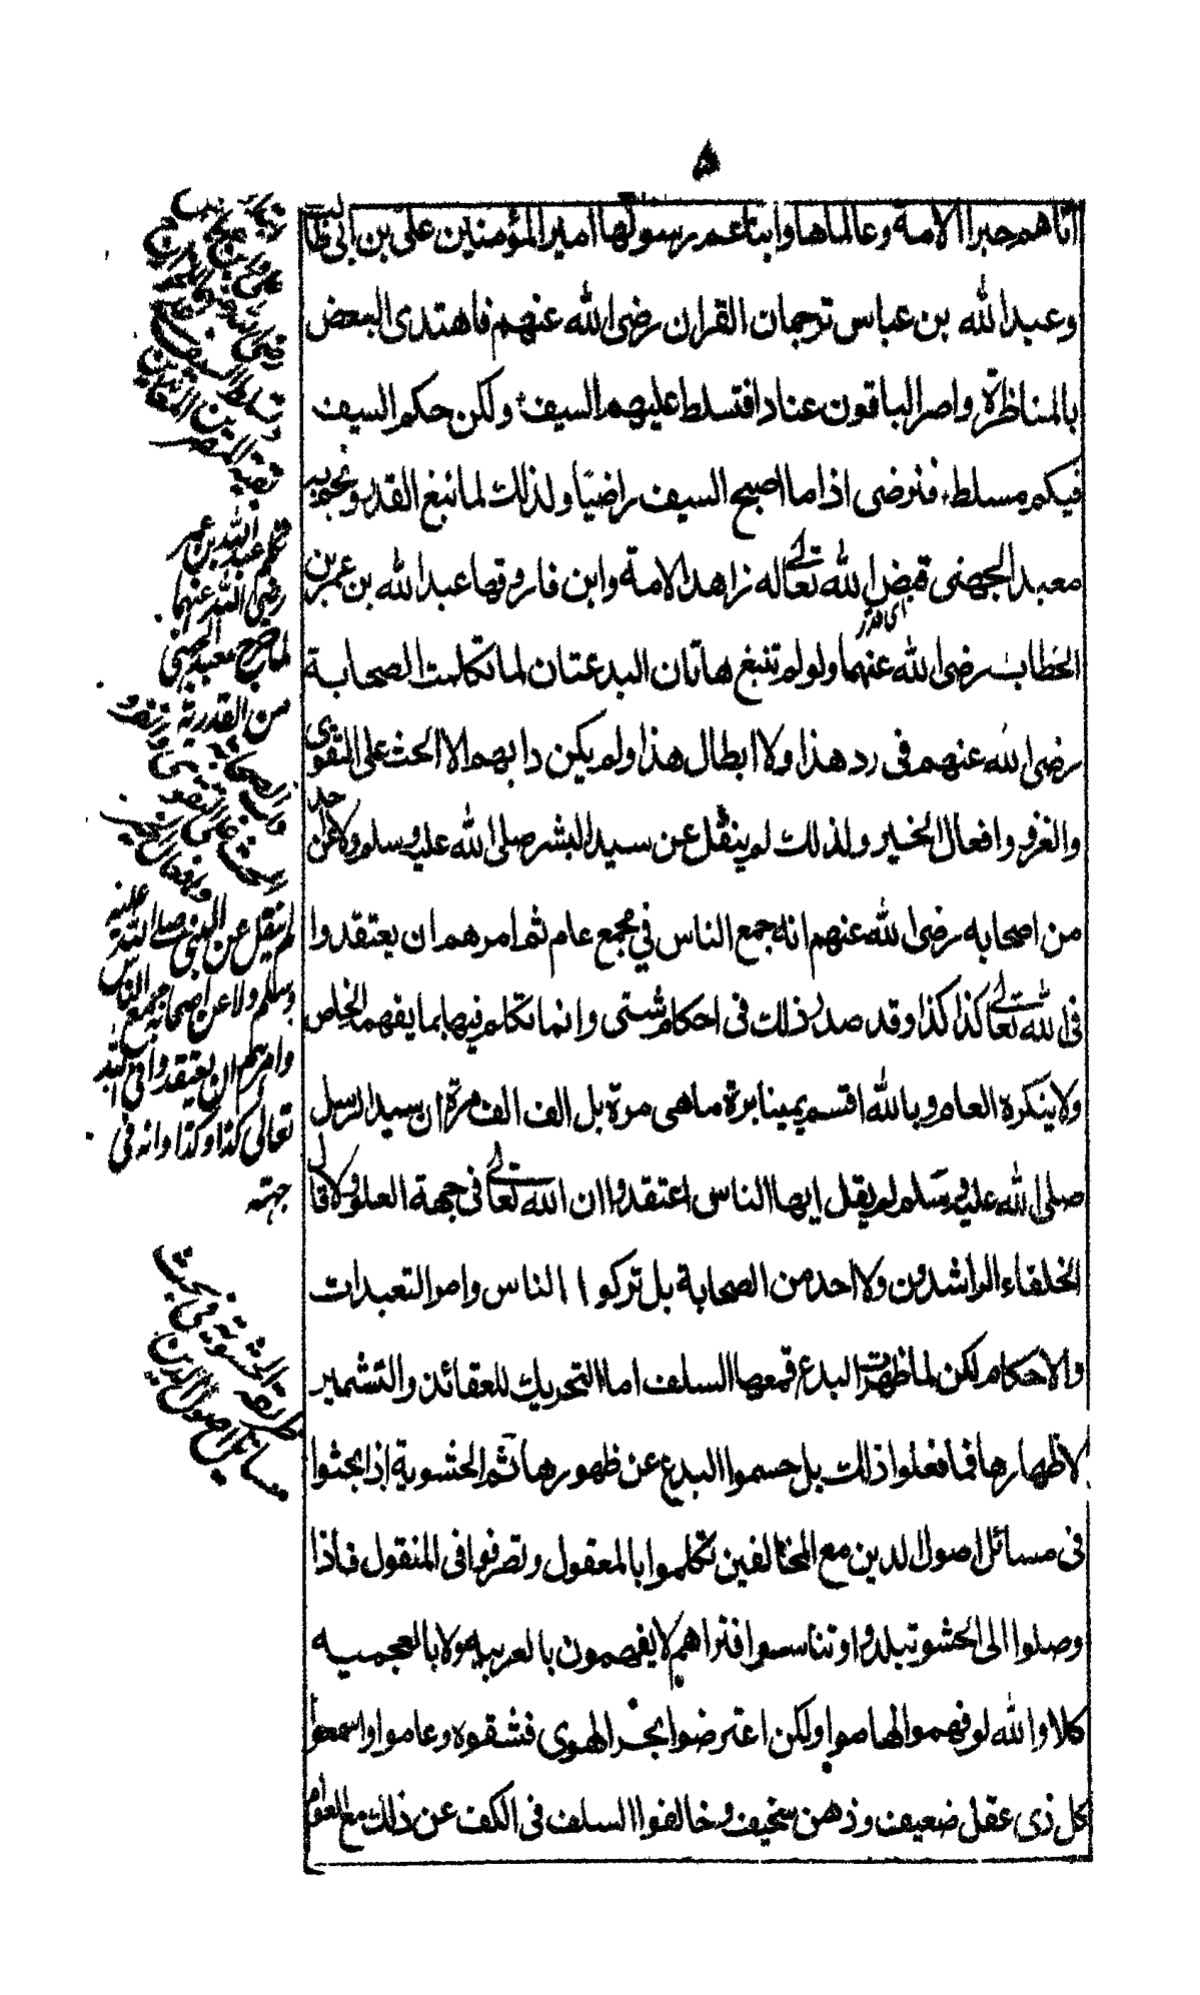 ۵
اتاهم حبرا الامة وعالماها وابنا عم رسولها امير المؤمنين على بن ابى طالب
وعبد الله بن عباس ترجمان القران رضى الله عنهم فاهتدى البعض
بالمناظرة واصر الباقون عنادا فتسلط عليهم السيف ولكن حكم السيف
فيكم مسلط فنرضى اذا ما اصبح السيف راضيا ولذلك لما نبغ القدر ونجم به
معبد الجهنى قيض الله تعالى له زاهد الامة وابن فاروقها عبد الله بن عمر بن
اى قدر
الخطاب رضى الله عنهما ولو لم تنبغ هاتان البدعتان لما تكلمت الصحابة
رضى الله عنهم فى رد هذا ولا ابطال هذا ولم يكن دابهم الا الحث على التقوى
والغزو وافعال الخير ولذلك لم ينقل عن سيد البشر صلى الله عليه وسلم ولا عن احد
من اصحابه رضى الله عنهم انه جمع الناس في مجمع عام ثم امرهم ان يعتقدوا
فى الله تعالى كذا كذا وقد صدر ذلك فى احكام شتى وانما تكلم فيها بما يفهمه الخاص
ولا ينكره العام وبالله اقسم يمينا برة ماهى مرة بل الف الف مرة ان سيد الرسل
صلى الله عليه وسلم لم يقل ايها الناس اعتقدوا ان الله تعالى فى جهة العلو ولا قال
الخلفاء الراشدون ولا احد من الصحابة بل تركوا الناس وامر التعبدات
والاحكام لكن لما ظهرت البدع قمعها السلف اما التحريك للعقائد والتشمير
لاظهارها فما فعلوا ذلك بل حسموا البدع عن ظهورها ثم الحشوية إذا بحثوا
فى مسائل اصول الدين مع المخالفين تكلموا بالمعقول وتصرفوا فى المنقول فاذا
وصلوا الى الحشو تبلدوا وتناسوا فتراهم لا يفهمون بالعربيه ولا بالعجميه
كلا والله لو فهموا لهاموا ولكن اعترضوا بحر الهوى فشقوه وعاموا واسمعوا
كل ذى عقل ضعيف وذهن سخيف وخالفوا السلف فى الكف عن ذلك مع العوام
تكلم عبد الله بن عمر
رضى الله عنهما
لما خرج معبد الجهنى
من القدرية
داب الصحابة
الحث على التقوى والغزو
وافعال الخير
لم ينقل عن النبى صلى الله عليه
وسلم ولا عن اصحابه جمع الناس
وامرهم ان يعتقدوا فى الله
تعالى كذا وكذا وانه فى
جهته
طريقة الحشوية فى بحث
مسائل اصول الدين